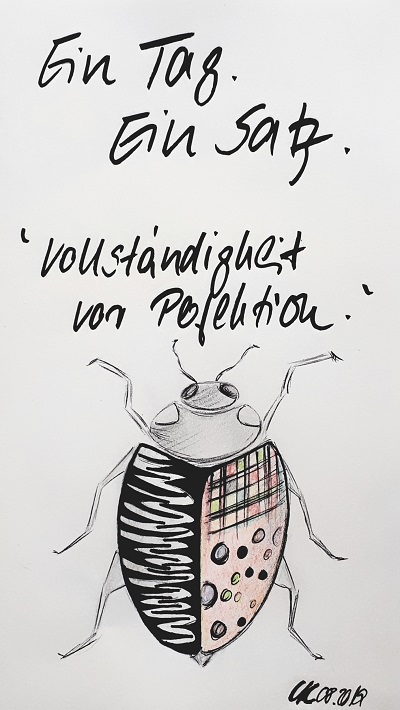 Ein Tag.
Ein Satz.
'Vollständigkeit
vor Perfektion.'
08.2019